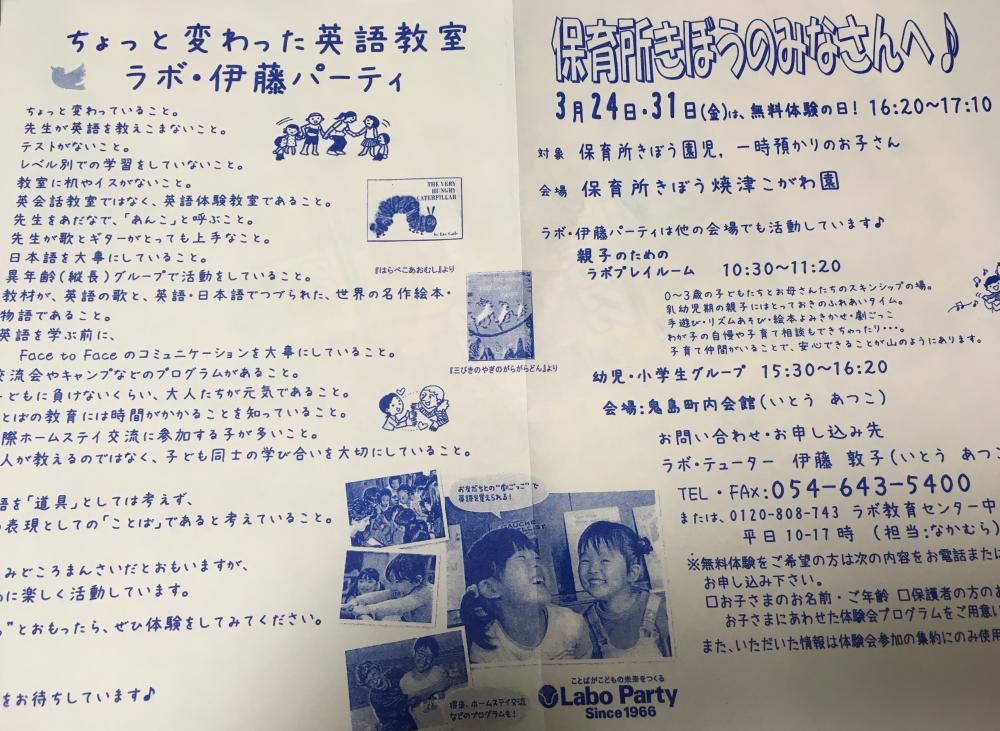 ちょっと変わった英語教室
ラボ・伊藤パーティ
ちょっと変わっていること。
先生が英語を教えこまないこと。
テストがないこと。
レベル別での学習をしていないこと。
教室に机やイスがないこと。
英会話教室ではなく、英語体験教室であること。
先生をあだなで、「あんこ」と呼ぶこと。
先生が歌とギターがとっても上手なこと。
日本語を大事にしていること。
異年齢(縦長)グループで活動をしていること。
教材が、英語の歌と、英語・日本語でつづられた、世界の名作絵本・
物語であること。
英語を学ぶ前に、
Face to Face のコミュニケーションを大事にしていること。
交流会やキャンプなどのプログラムがあること。
どもに負けないくらい、大人たちが元気であること。
とばの教育には時間がかかることを知っていること。
際ホームステイ交流に参加する子が多いこと。
人が教えるのではなく、子ども同士の学び合いを大切にしていること。
語を「道具」としては考えず、
の表現としての「ことば」であると考えていること。
みどころまんさいだとおもいますが、
に楽しく活動しています。
”とおもったら、ぜひ体験をしてみてください。
をお待ちしています♪
THE VERY
HUNGRY
CATERPILLAR
by Eric Carle
『はらぺこあおむし』より
『三びきのやぎのがらがらどん』より
お友だちとの“劇ごっこ”で
英語を覚えられる!
将来、ホームステイ交流
などのプログラムも!
ことばがこどもの未来をつくる
Labo Party
Since 1966
保育所きぼうのみなさんへ♪
3月24日・31日(金)は、無料体験の日! 16:20〜17:10
対象 保育所きぼう園児,一時預かりのお子さん
会場 保育所きぼう焼津こがわ園
ラボ・伊藤パーティは他の会場でも活動しています♪
親子のための
ラボプレイルーム 10:30〜11:20
0〜3歳の子どもたちとお母さんたちのスキンシップの場。
乳幼児期の親子にはとっておきのふれあいタイム。
手遊び・リズムあそび・絵本よみきかせ・劇ごっこ
わが子の自慢や子育て相談もできちゃったり・・・。
子育て仲間がいることで、安心できることが山のようにあります。
幼児・小学生グループ 15:30〜16:20
会場:鬼島町内会館(いとう あつこ)
お問い合わせ・お申し込み先
ラボ・テューター 伊藤 敦子(いとう あつこ
TEL・FAX:054-643-5400
または、0120-808-743 ラボ教育センター中
平日 10-17時 (担当:なかむら)
※無料体験をご希望の方は次の内容をお電話または
お申し込み下さい。
□お子さまのお名前・ご年齢 □保護者の方のお
お子さまにあわせた体験会プログラムをご用意い
また、いただいた情報は体験会参加の集約にのみ使用